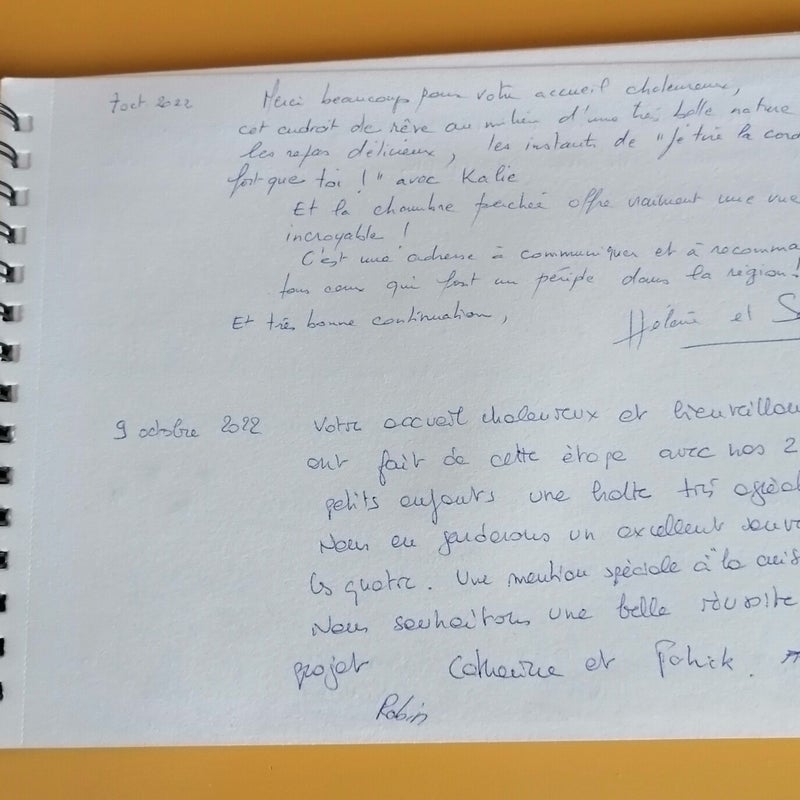 7 oct 2022 Merci beaucoup pour votre accueil chaleureux,
cet endroit de rêve au milieu d'une très belle nature
les repas délicieux, les instants de "je tire la cord
fort que toi !" avec Kalie
Et la chambre perchée offre vraiment une vue
incroyable !
C'est une adresse à communiquer et à recomma
tous ceux qui font un périple dans la région !
Et très bonne continuation,
Hélène et S
9 octobre 2022 Votre accueil chaleureux et bienveillan
ont fait de cette étape avec nos 2
petits enfants une halte très agréa
Nous en garderons un excellent souv
les quatre. Une mention spéciale à la cuis
Nous souhaitons une belle réussite
projet Catherine et Patrick.
Robin